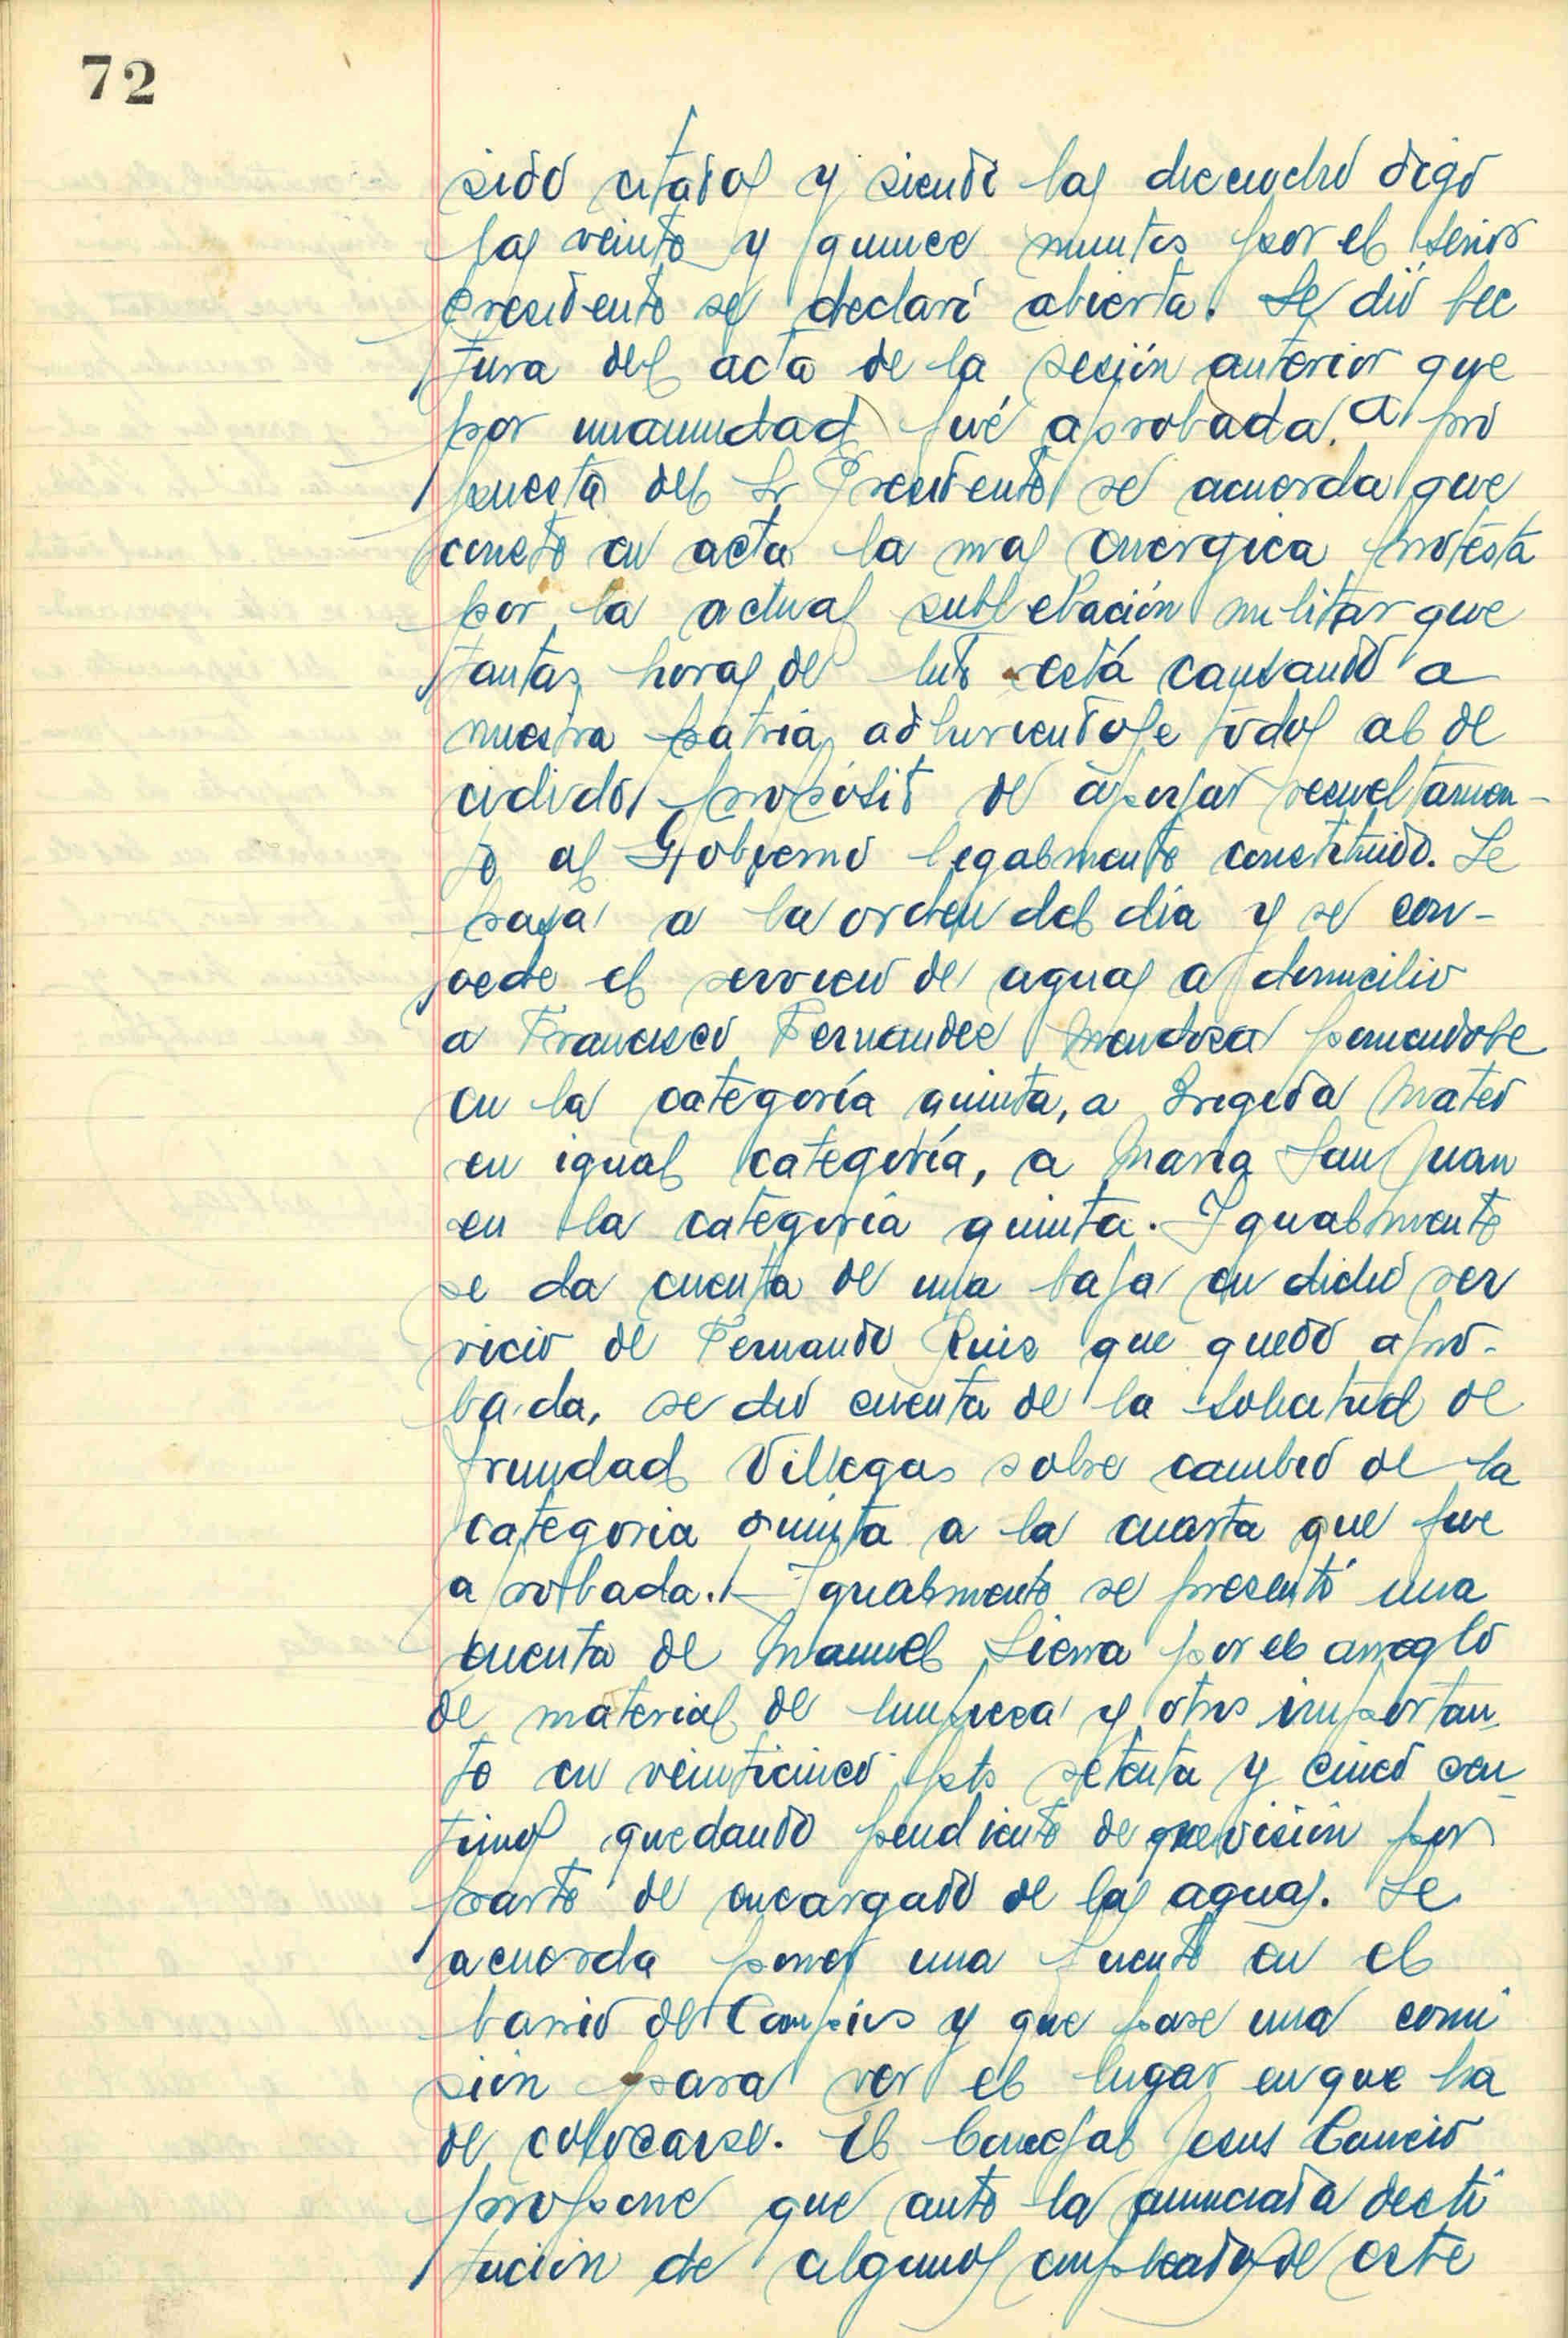 72
sido citados y siendo las dieciocho digo
las veinte y quince minutos por el Señor
Presidente se declaró abierta. Se dió lec
tura del acta de la sesión anterior que
por unanimidad fué aprobada. A pro
puesta del Sr Presidente se acuerda que
conste en acta la mas energica protesta
por la actual subblebación militar que
tantas horas de luto está causando a
nuestra patria, adhiriendose todos al de
cidido proposito de apoyar resueltamen-
te al Gobierno legalmente constituido. Se
pasa a la orden del dia y se con-
cede el servicio de aguas a domicilio
a Francisco Fernandez Mendoza poniendole
en la categoría quinta, a Brigida Mateo
en igual categoría, a Maria San Juan
en la categoria quinta. Igualmente
se da cuenta de una baja en dicho ser
vicio de Fernando Ruiz que quedó apro-
bada, se dio cuenta de la solicitud de
Trinidad Villegas sobre cambio de la
categoria quinta a la cuarta que fue
aprobada. Igualmente se presentó una
cuenta de Manuel Sierra por el arreglo
de material de limpieza y otros importan
te en veinticinco pts setenta y cinco cen-
timos quedando pendiente de revisión por
parte de encargado de las aguas. Se
acuerda poner una fuente en el
barrio de Campios y que pase una comi
sión para ver el lugar en que ha
de colocarse. El Concejal Jesus Cancio
propone que ante la anunciada desti
tución de algunos empleados de este